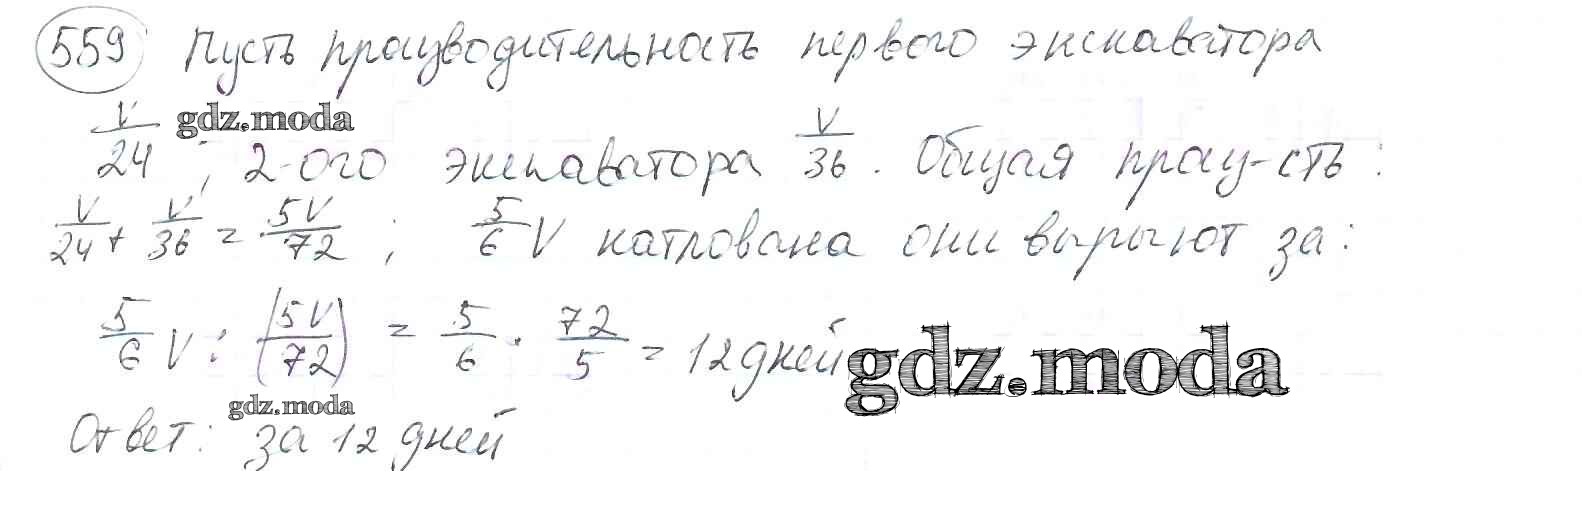 559 Пусть производительность первого экскаватора
V/24 gdz.moda ; 2-ого экскаватора V/36. Общая произ-сть:
V/24 + V/36 = 5V/72 ; 5/6 V котлована они выроют за:
5/6 V : (5V/72) = 5/6 · 72/5 = 12 дней gdz.moda
gdz.moda
Ответ: за 12 дней